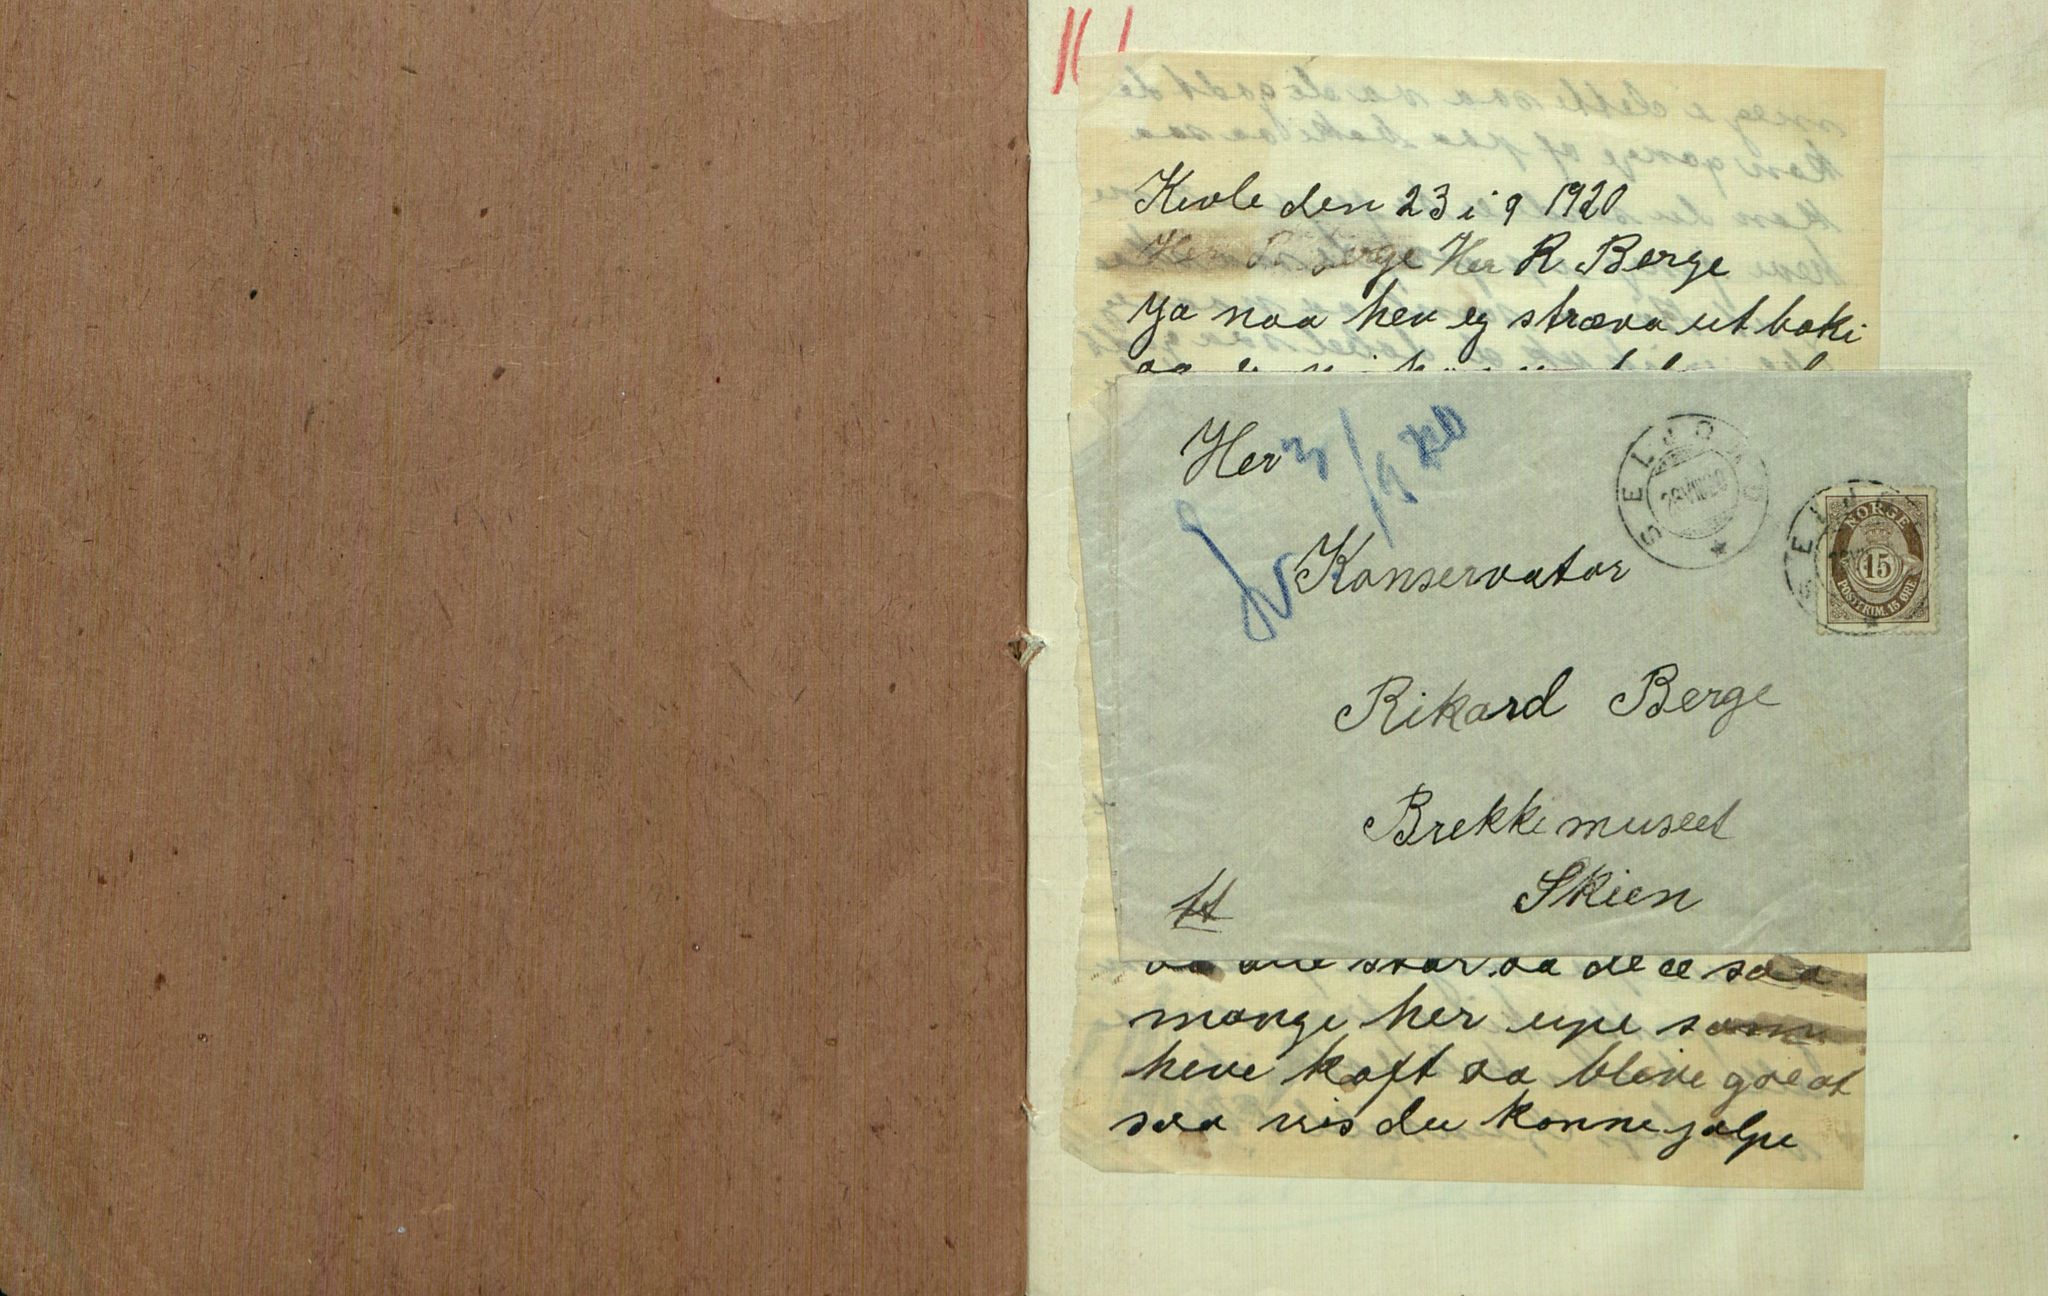 Kivle den 23 i 9 1920
Her R Berge Her R Berge
Ja naa hev eg stræva ut boki
Her 3/9 20
Sv.
Konservator
Rikard Berge
Brekkimuseet
Skien
SELJORD
28 VIII 20
NORGE
15
POSTFRIM. 15 ØRE
SELJORD
store aa de æ saa
mange her upe som
heve kaft aa blive gret
saa vis du konne jalpe